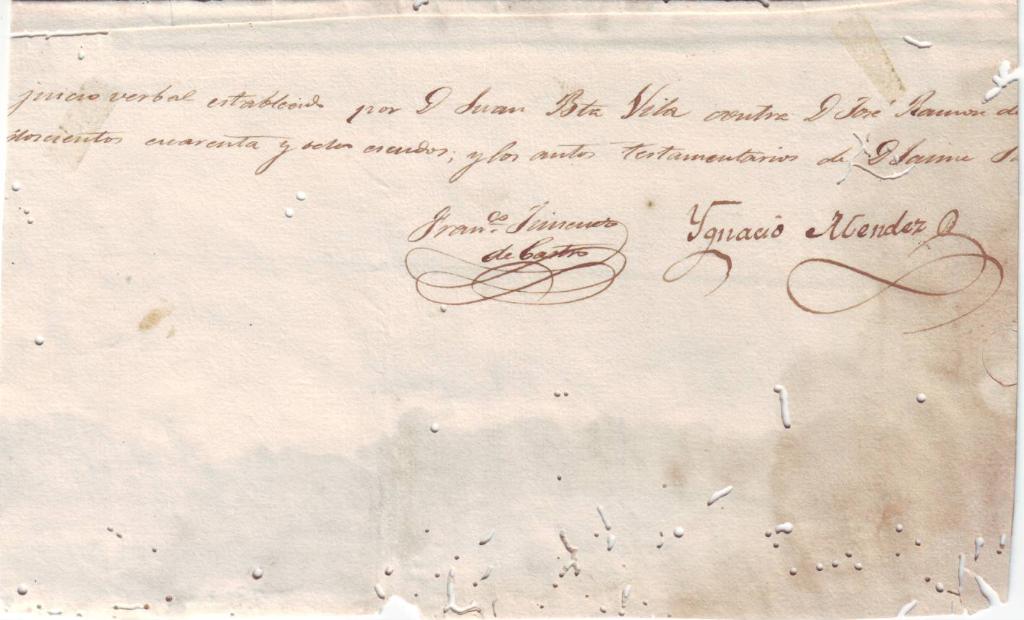 juicio verbal establecido por D Juan Bta Vila contra D José Ramon de
doscientos cuarenta y ocho escudos; y los autos testamentarios de D Jaime
Fran.co Jimenez Ygnacio Mendez
de Castro